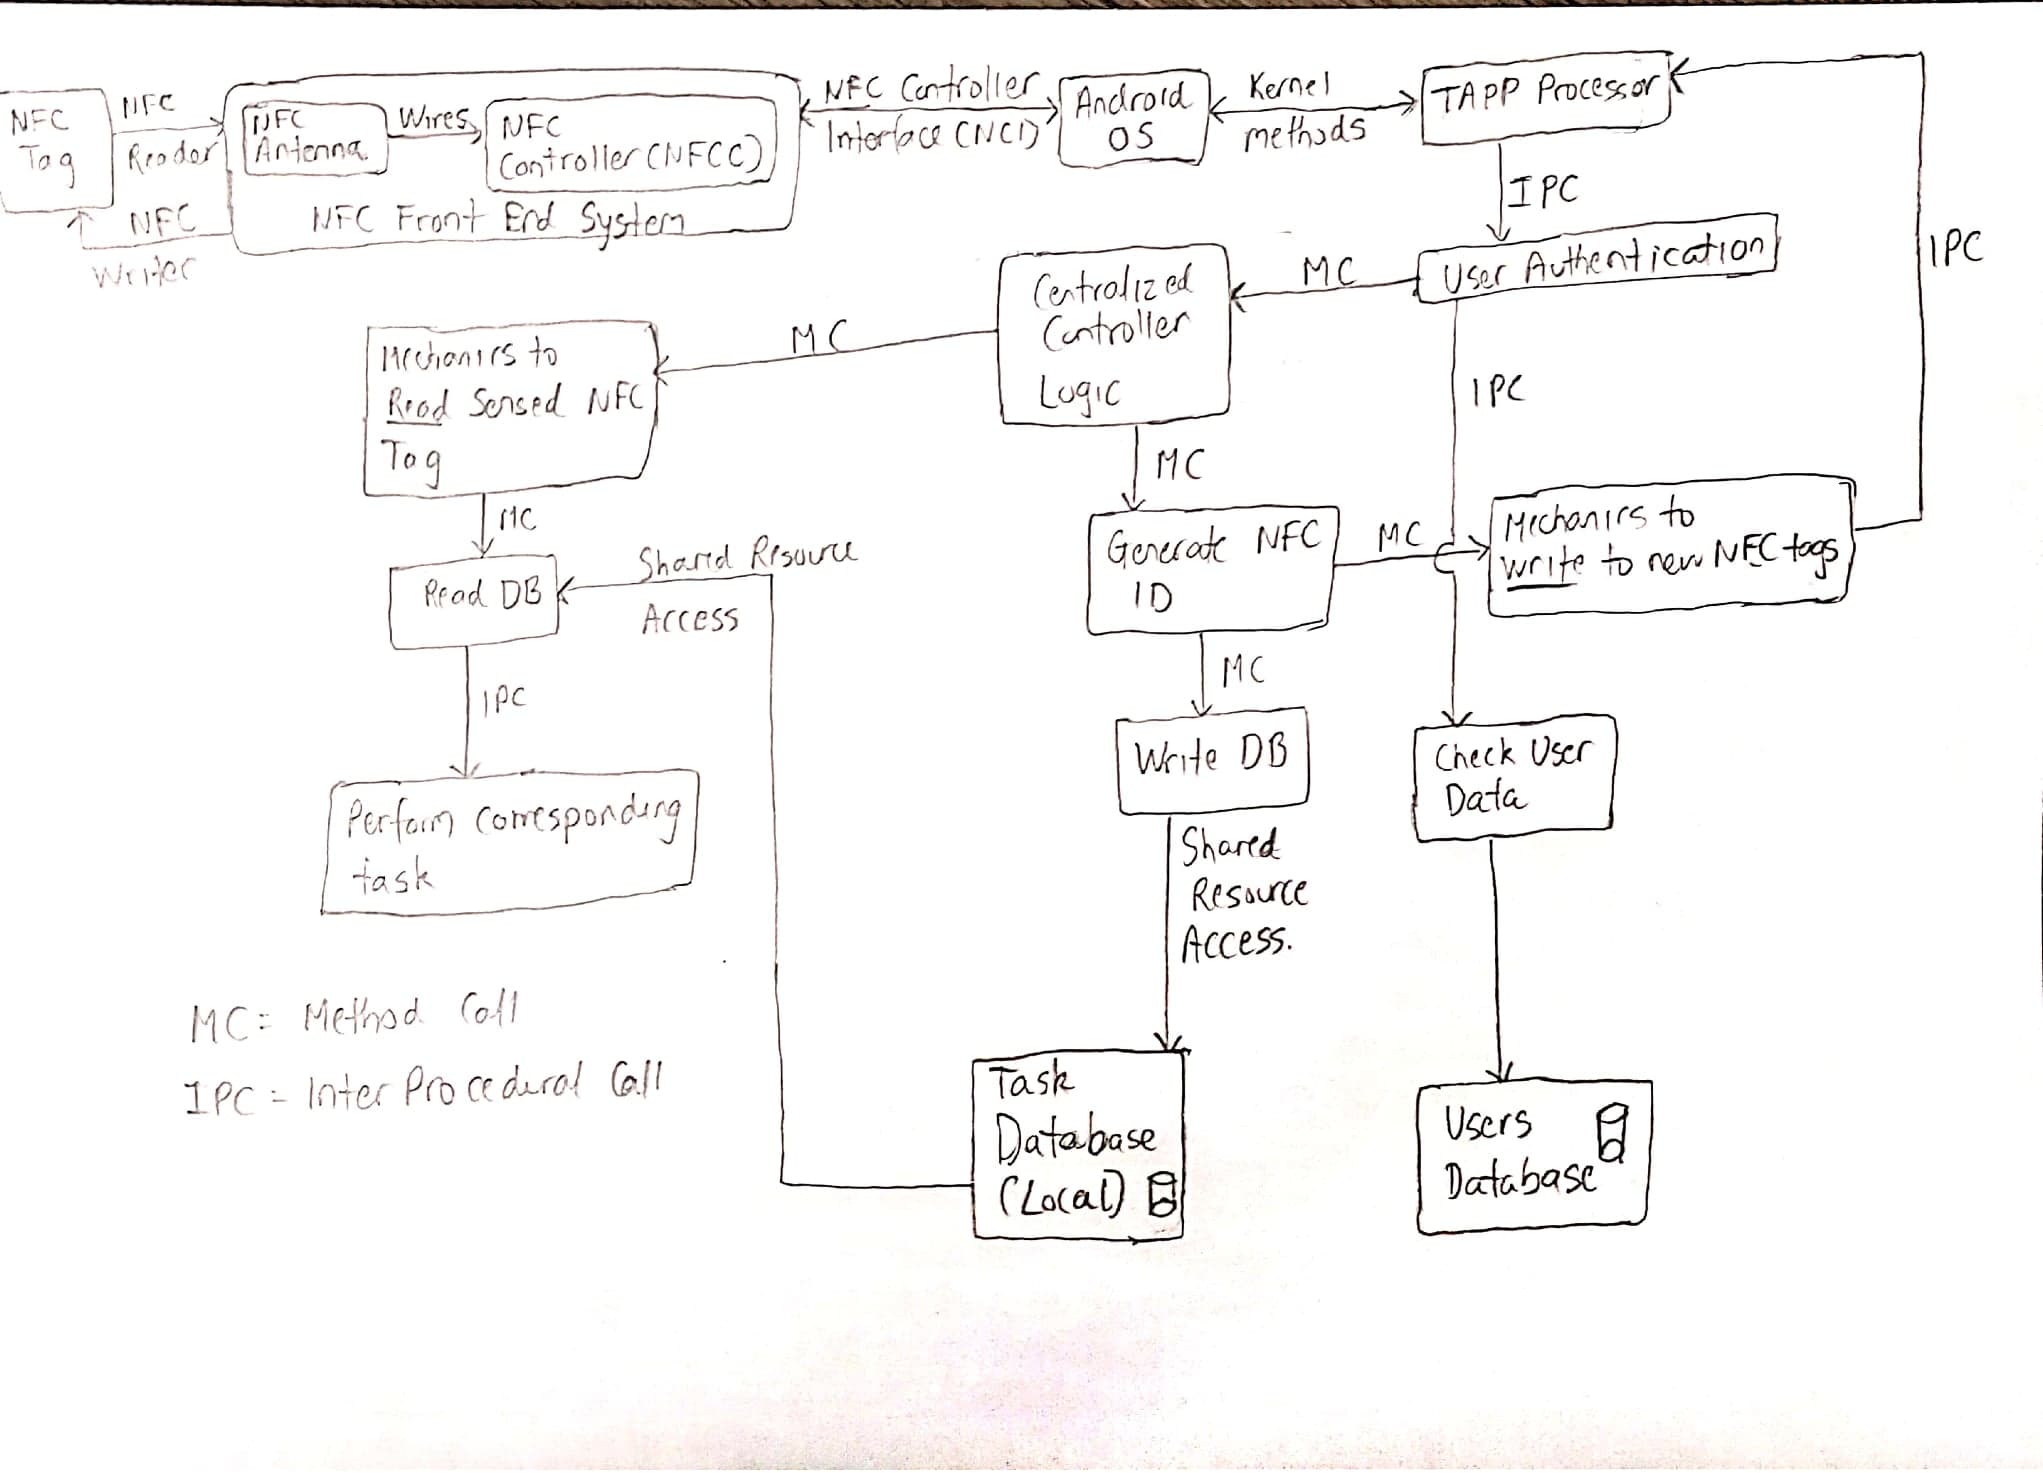 NFC
Tag
NFC
Reader
NFC
Writer
NFC
Antenna
Wires
NFC
Controller (NFCC)
NFC Front End System
NFC Controller
Interface (NCI)
Android
OS
Kernel
methods
TAPP Processor
IPC
IPC
User Authentication
MC
Centralized
Controller
Logic
MC
Mechanics to
Read Sensed NFC
Tag
IPC
MC
MC
Generate NFC
ID
MC
Mechanics to
write to new NFC tags
Shared Resource
Access
Read DB
MC
IPC
Write DB
Check User
Data
Perform corresponding
task
Shared
Resource
Access.
MC = Method Call
IPC = Inter Procedural Call
Task
Database
(Local)
Users
Database